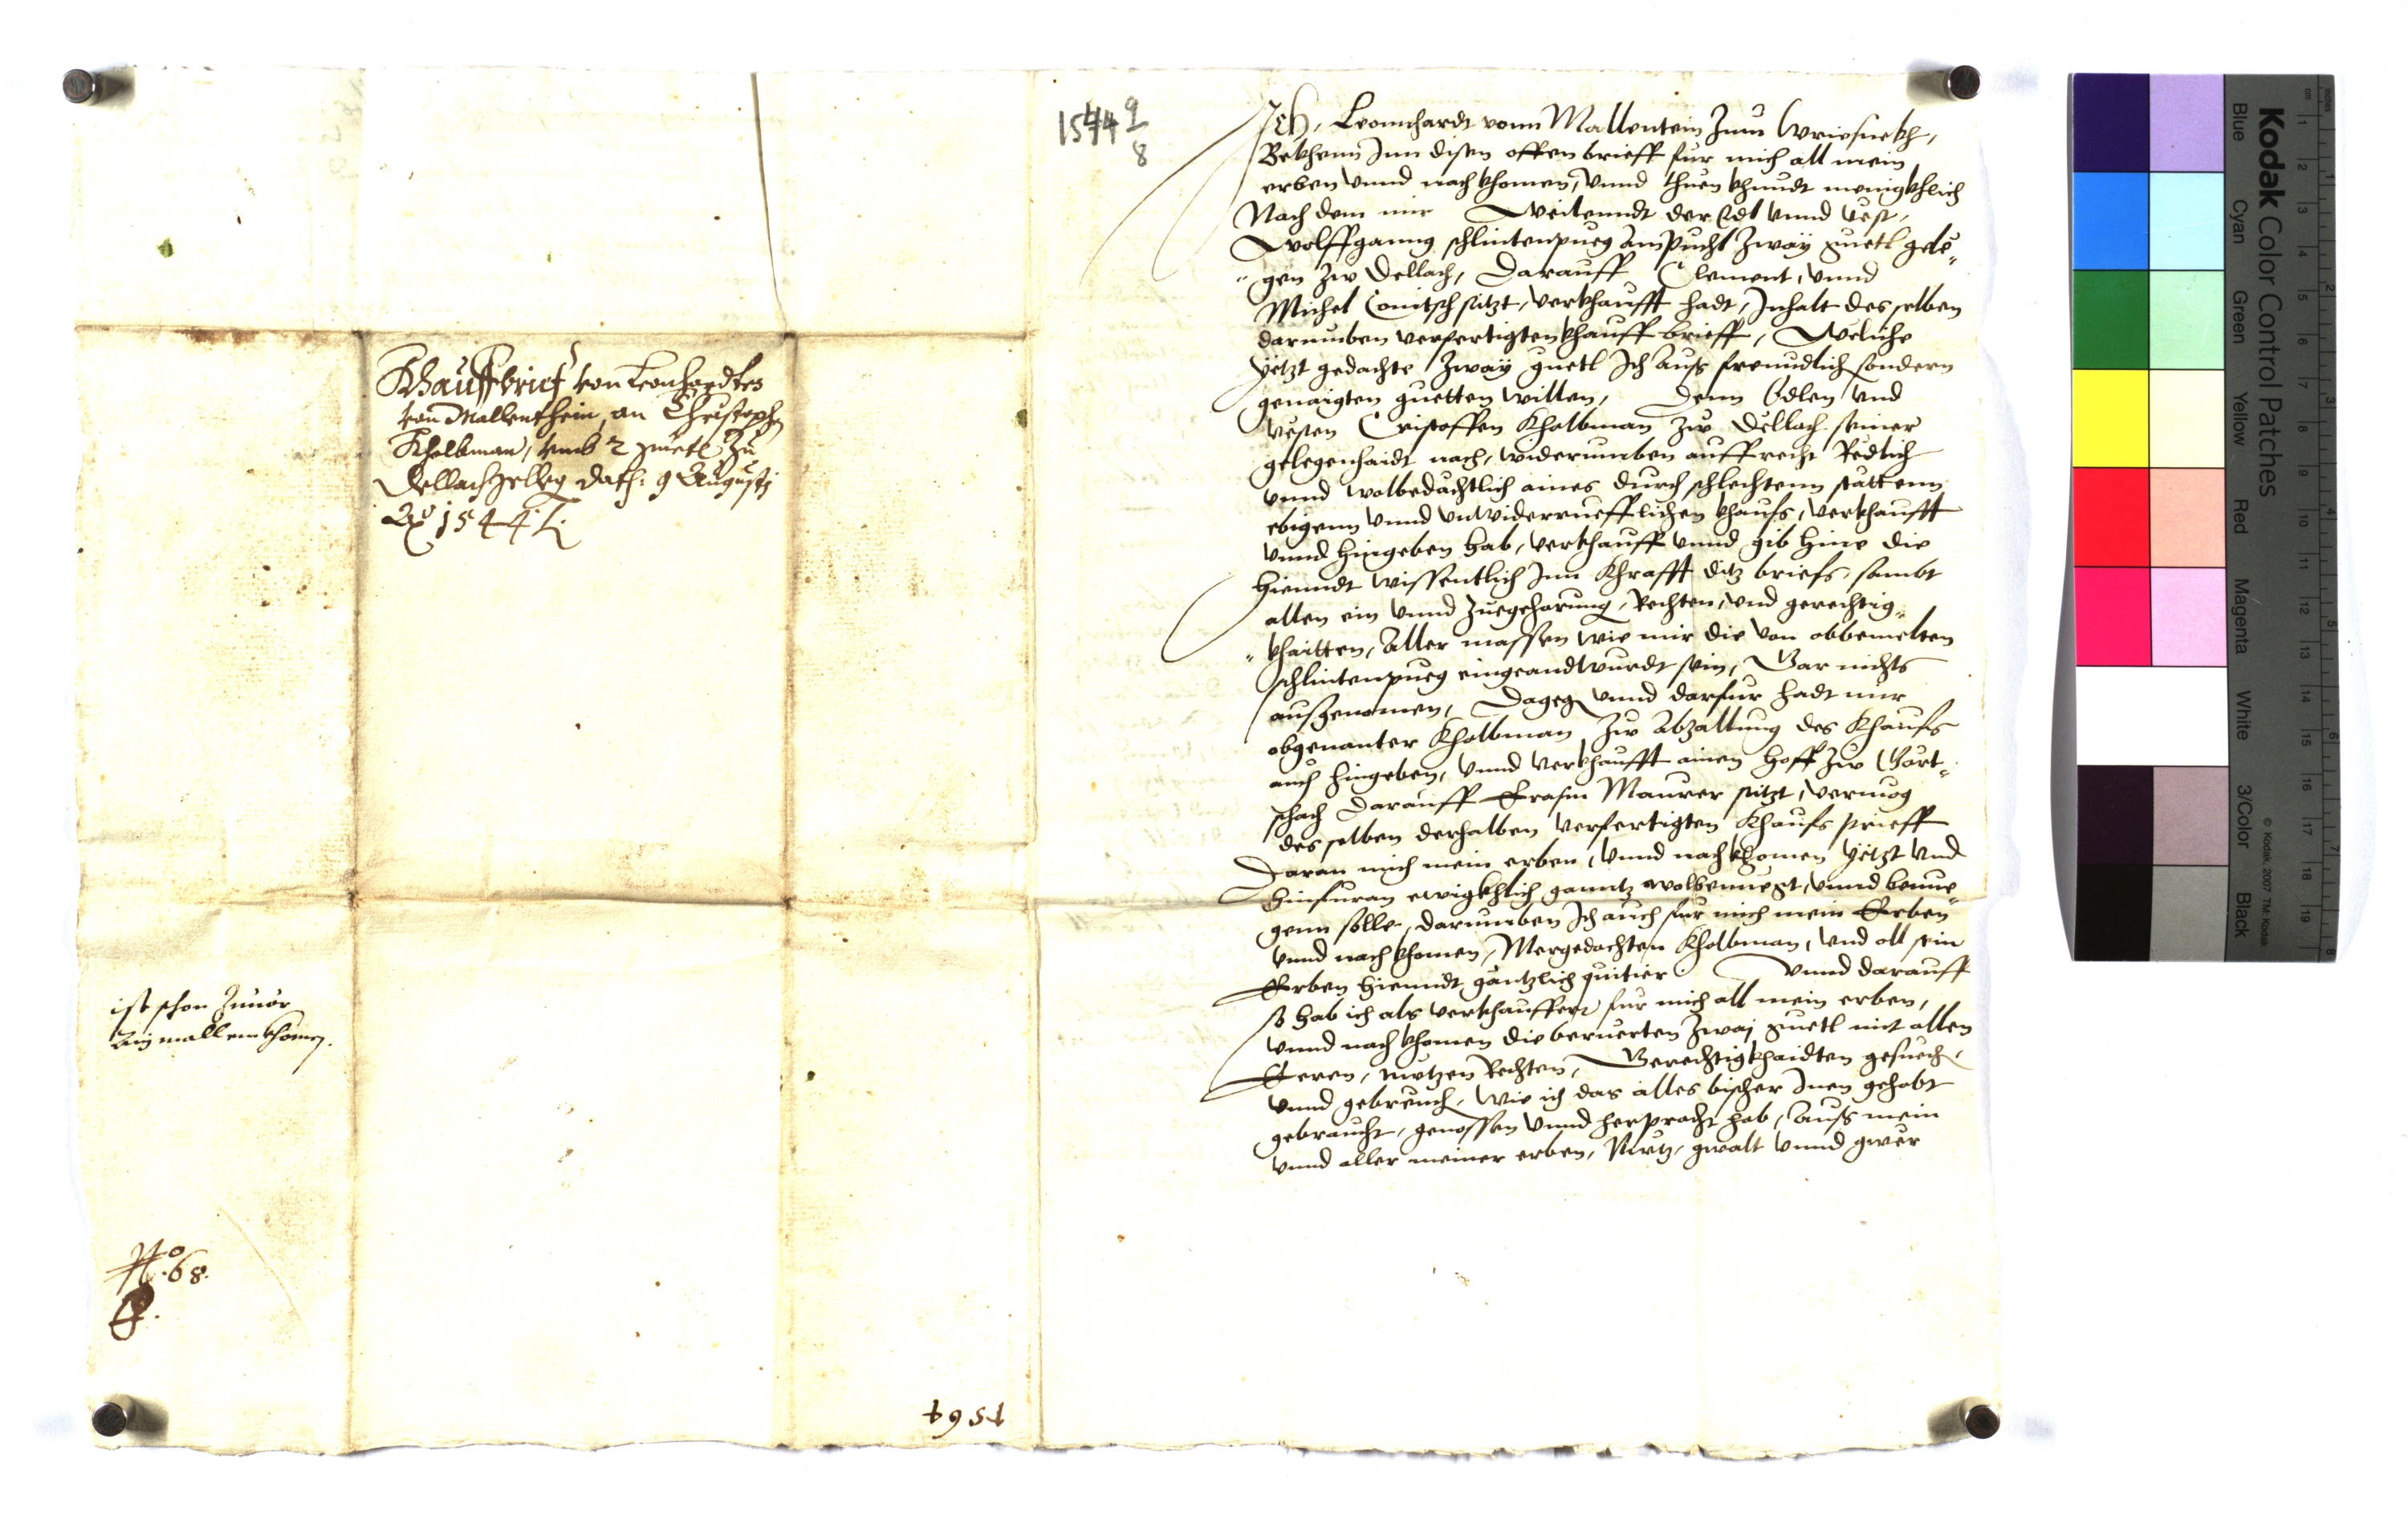 Khauffbrief von Leonhardten
von Mallenthein, an Christophen
Kholbman, vmb 2 guetl zu
Dellach gelleg dath: 9 Augustj
Aō 1544 L.
ist schon zuuor
Ain mall einkhomen.
No. 68.
1564
1544 9/8
Ich, Leonnhardt vonn Mallentein Zum
Bekhenn Inn disen offen brieff fur mich all mein
erben vnnd nachkhomen, vnnd thuen khundt menigkhlich
Nach dem mir Weilenndt der Edl vnnd Vest,
Wolffganng schlintenpueg Ambsucht Zwaÿ guetl gele„
„gen zw Dellach, Darauff Clement, vnnd
Michel sitzt, verkhaufft hadt, Inhalt des selben
darumben verfertigten khauff brieff, Weliche
yetzt gedachte Zwaÿ guetl Ich auss freundlich sondern
genaigten guetten willen, Denn Edlen vnd
vesten Cristoffen Kholbman zw Dellach seiner
gelegenhaidt nach, widerumben auffrecht Redlich
vnnd wolbedachtlich aines durch schlechtenn stättenn
ebigenn vnnd vnwiderruefflichen khaufs, verkhaufft
vnnd hingeben hab, verkhauff vnnd gib hine die
hiemidt wissentlich Inn Khrafft ditz briefs, sambt
allen ein vnnd Zuegeharung, Rechten, vnd gerechtig„
„khaitten, Aller massen wie mir die von obbemelten
schlintenpueg eingeandtwurdt sein, Gar nichts
ausgenomen, Dageg vnnd darfur hadt mir
obgenanter Kholbman zw abzallung des Khaufs
auch hingeben, vnnd verkhaufft ainen hoff zw Gört„
schach Darauff Erasm Maurer sitzt, vermog
des selben derhalben verfertigten Khaufs prieff
Daran mich mein erben, vnnd nachkhomen yetzt vnd
hinfuran ewigkhlich ganntz wolbenuegt, vnnd benue„
genn solle, darumben Ich auch fur mich mein Erben
vnnd nachkhomen, Mergedachten Kholbman, vnd all sein
Erben hiemidt gäntzlich quitier vnnd darauff
so hab ich als verkhauffer fur mich all mein erben,
vnnd nachkhomen die beruerten Zwaj guetl mit allen
Eeren, nutzen Rechten, Gerechtigkhaidten gesuech,
vnnd gebreuch, wie ich das alles bisher Inen gehabt
gebraucht, genossen vnnd herpracht hab, Auss mein
vnnd aller meiner erben, Nutz, gwalt vnnd gwer
Kodak Color Control Patches
© Kodak, 2007 TM: Kodak
Blue Cyan Green Yellow Red Magenta White 3/Color Black